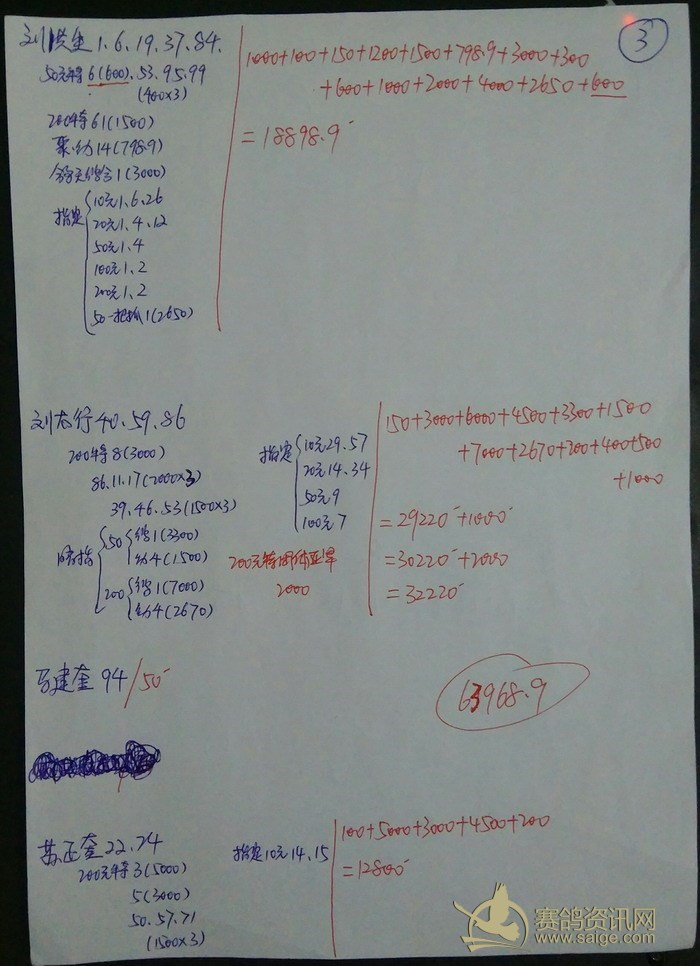 3
刘洪生 1.6.19.37.84.
50元特 6(600).53.95.99
(400×3)
200特 61(1500)
14(798.9)
1(3000)
指定 10元1.6.26
20元1.4.12
50元1.4
100元1.2
200元1.2
50一把抓1(2650)
1000+100+150+1200+1500+798.9+3000+300
+600+1000+2000+4000+2650+600
=18898.9
刘志行 40.59.86
200特8(3000)
86.11.17(2000×3)
39.46.53(1500×3)
50 1(3300)
幼4(1500)
200 1(7000)
幼4(2670)
指定 10元29.57
20元14.34
50元9
100元7
200元特 团体亚军
2000
150+3000+6000+4500+3300+1500
+7000+2670+200+400+500
+1000
=29220+1000
=30220+2000
=32220
马建奎 94/50
63968.9
苏正奎 22.74
200元特3(5000)
5(3000)
50.57.71
(1500×3)
指定10元14.15
100+5000+3000+4500+200
=12800
赛鸽资讯网
www.saige.com